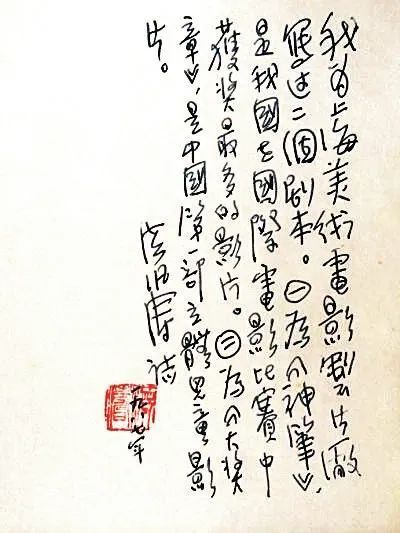 我为上海美術電影製片廠
寫过二個剧本。㊀為《神筆》,
是我國在國際電影比賽中
獲奖最多的影片。㊁為《大奖
章》,是中國第一部立體兒童影
片。
洪汛濤誌
一九八七年